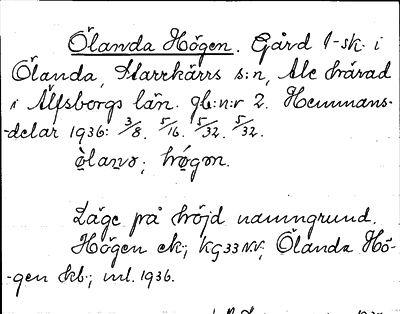 Ölanda Högen. Gård 1-sk. i
Ölanda, Starrkärrs s:n, Ale härad
i Älfsborgs län. gb:n:r 2. Hemmans-
-delar 1936: 3/8. 5/16. 5/32. 5/32.
Läge på höjd namngrund.
Högen ek; kg 33 N.V., Ölanda Hö-
-gen kb.; ml. 1936.